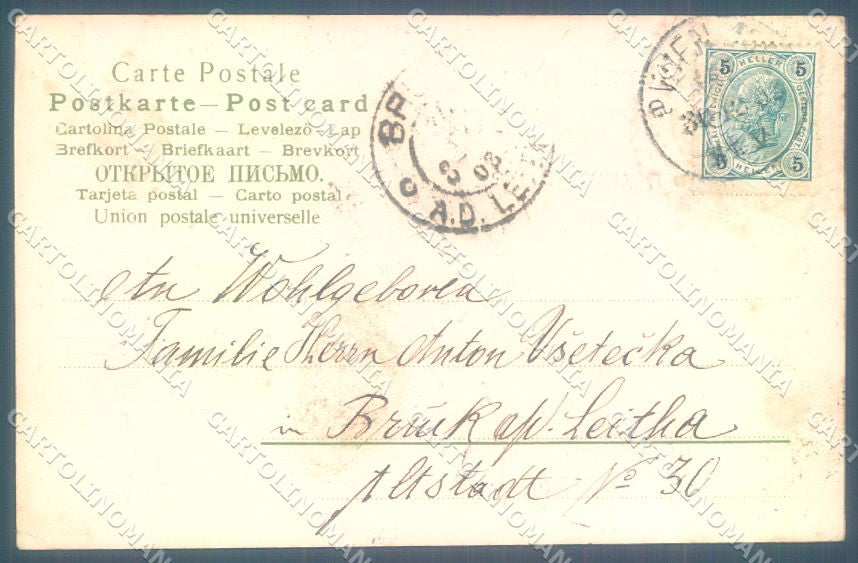 Carte Postale
Postkarte — Post card
Cartolina Postale — Levelező-Lap
Brefkort — Briefkaart — Brevkort
ОТКРЫТОЕ ПИСЬМО.
Tarjeta postal — Carto postal
Union postale universelle
WIEN
5 HELLER 5
5 5
A.D. LE
03
An Wohlgeboren
Familie Herrn Anton Všetečka
in Bruck a/. Leitha
Altstadt No 30
CARTOLINOMANIA